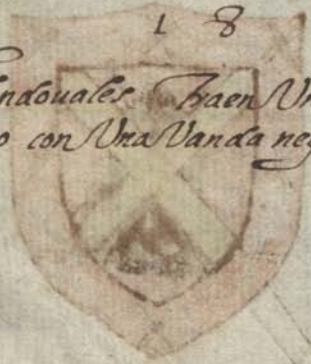 18
ndouales traen Vn
o con Vna Vanda neg